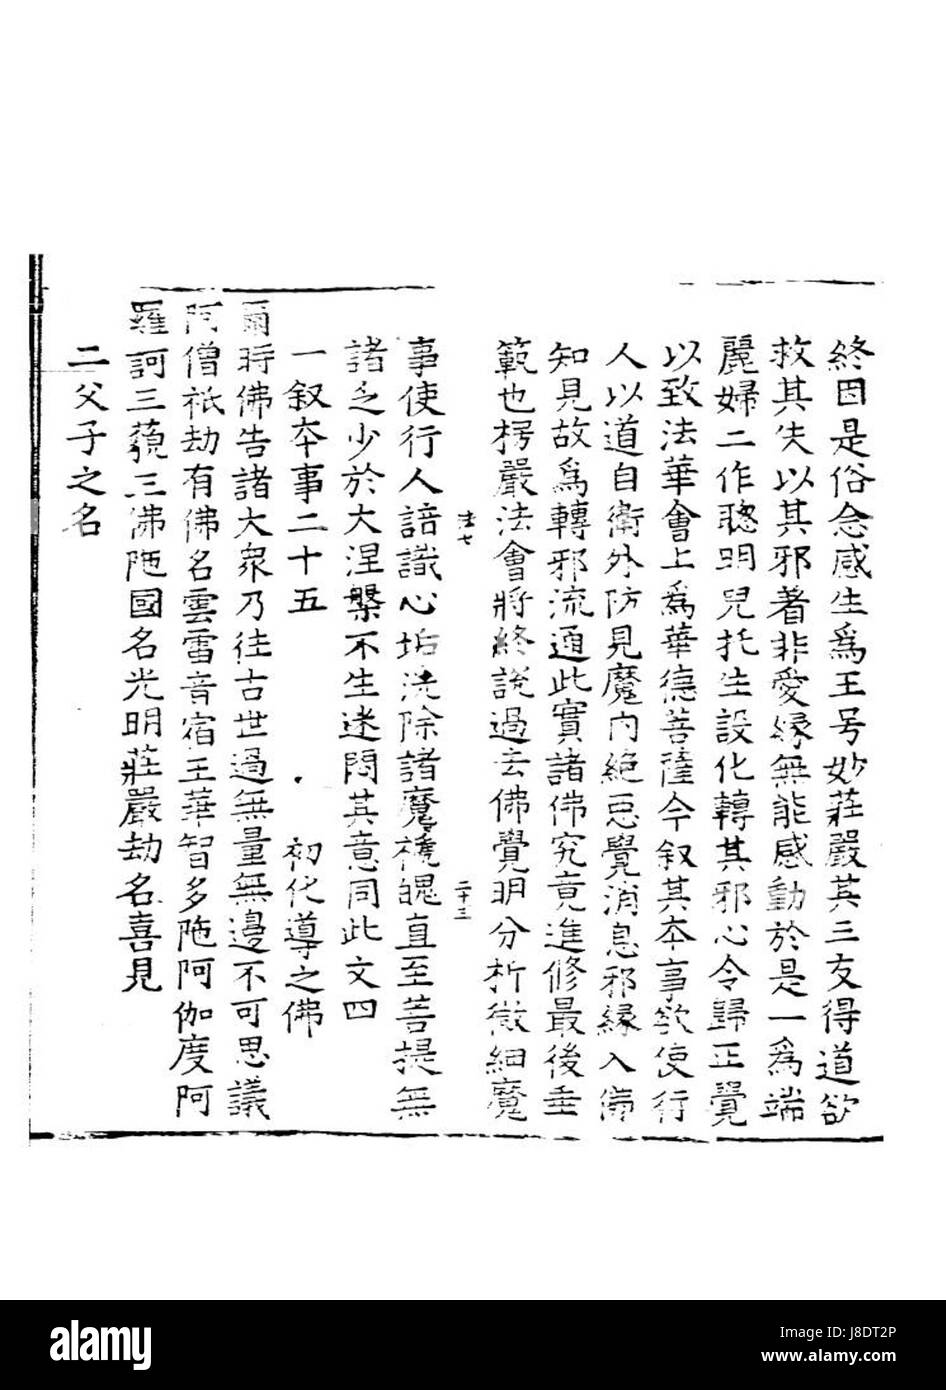 終因是俗念感生爲王号妙莊嚴其三友得道欲
救其失以其邪著非愛縁無能感動於是一爲端
麗婦二作聦明兒托生設化轉其邪心令歸正覺
以致法華會上爲華德菩薩今叙其夲事欲使行
人以道自衛外防見魔内絕惡覺消息邪縁入佛
知見故爲轉邪流通此實諸佛究竟進修最後垂
範也楞嚴法會將終説過去佛覺明分析微細魔
法七
二十三
事使行人諳識心垢洗除諸魔
直至菩提無
諸乏少於大涅槃不生迷悶其意同此文四
一叙夲事二十五
初化導之佛
爾時佛告諸大衆乃往古世過無量無邊不可思議
阿僧祇劫有佛名雲雷音宿王華智多陁阿伽度阿
羅訶三藐三佛陁國名光明莊嚴劫名喜見
二父子之名
alamy
alamy
Image ID: J8DT2P
www.alamy.com